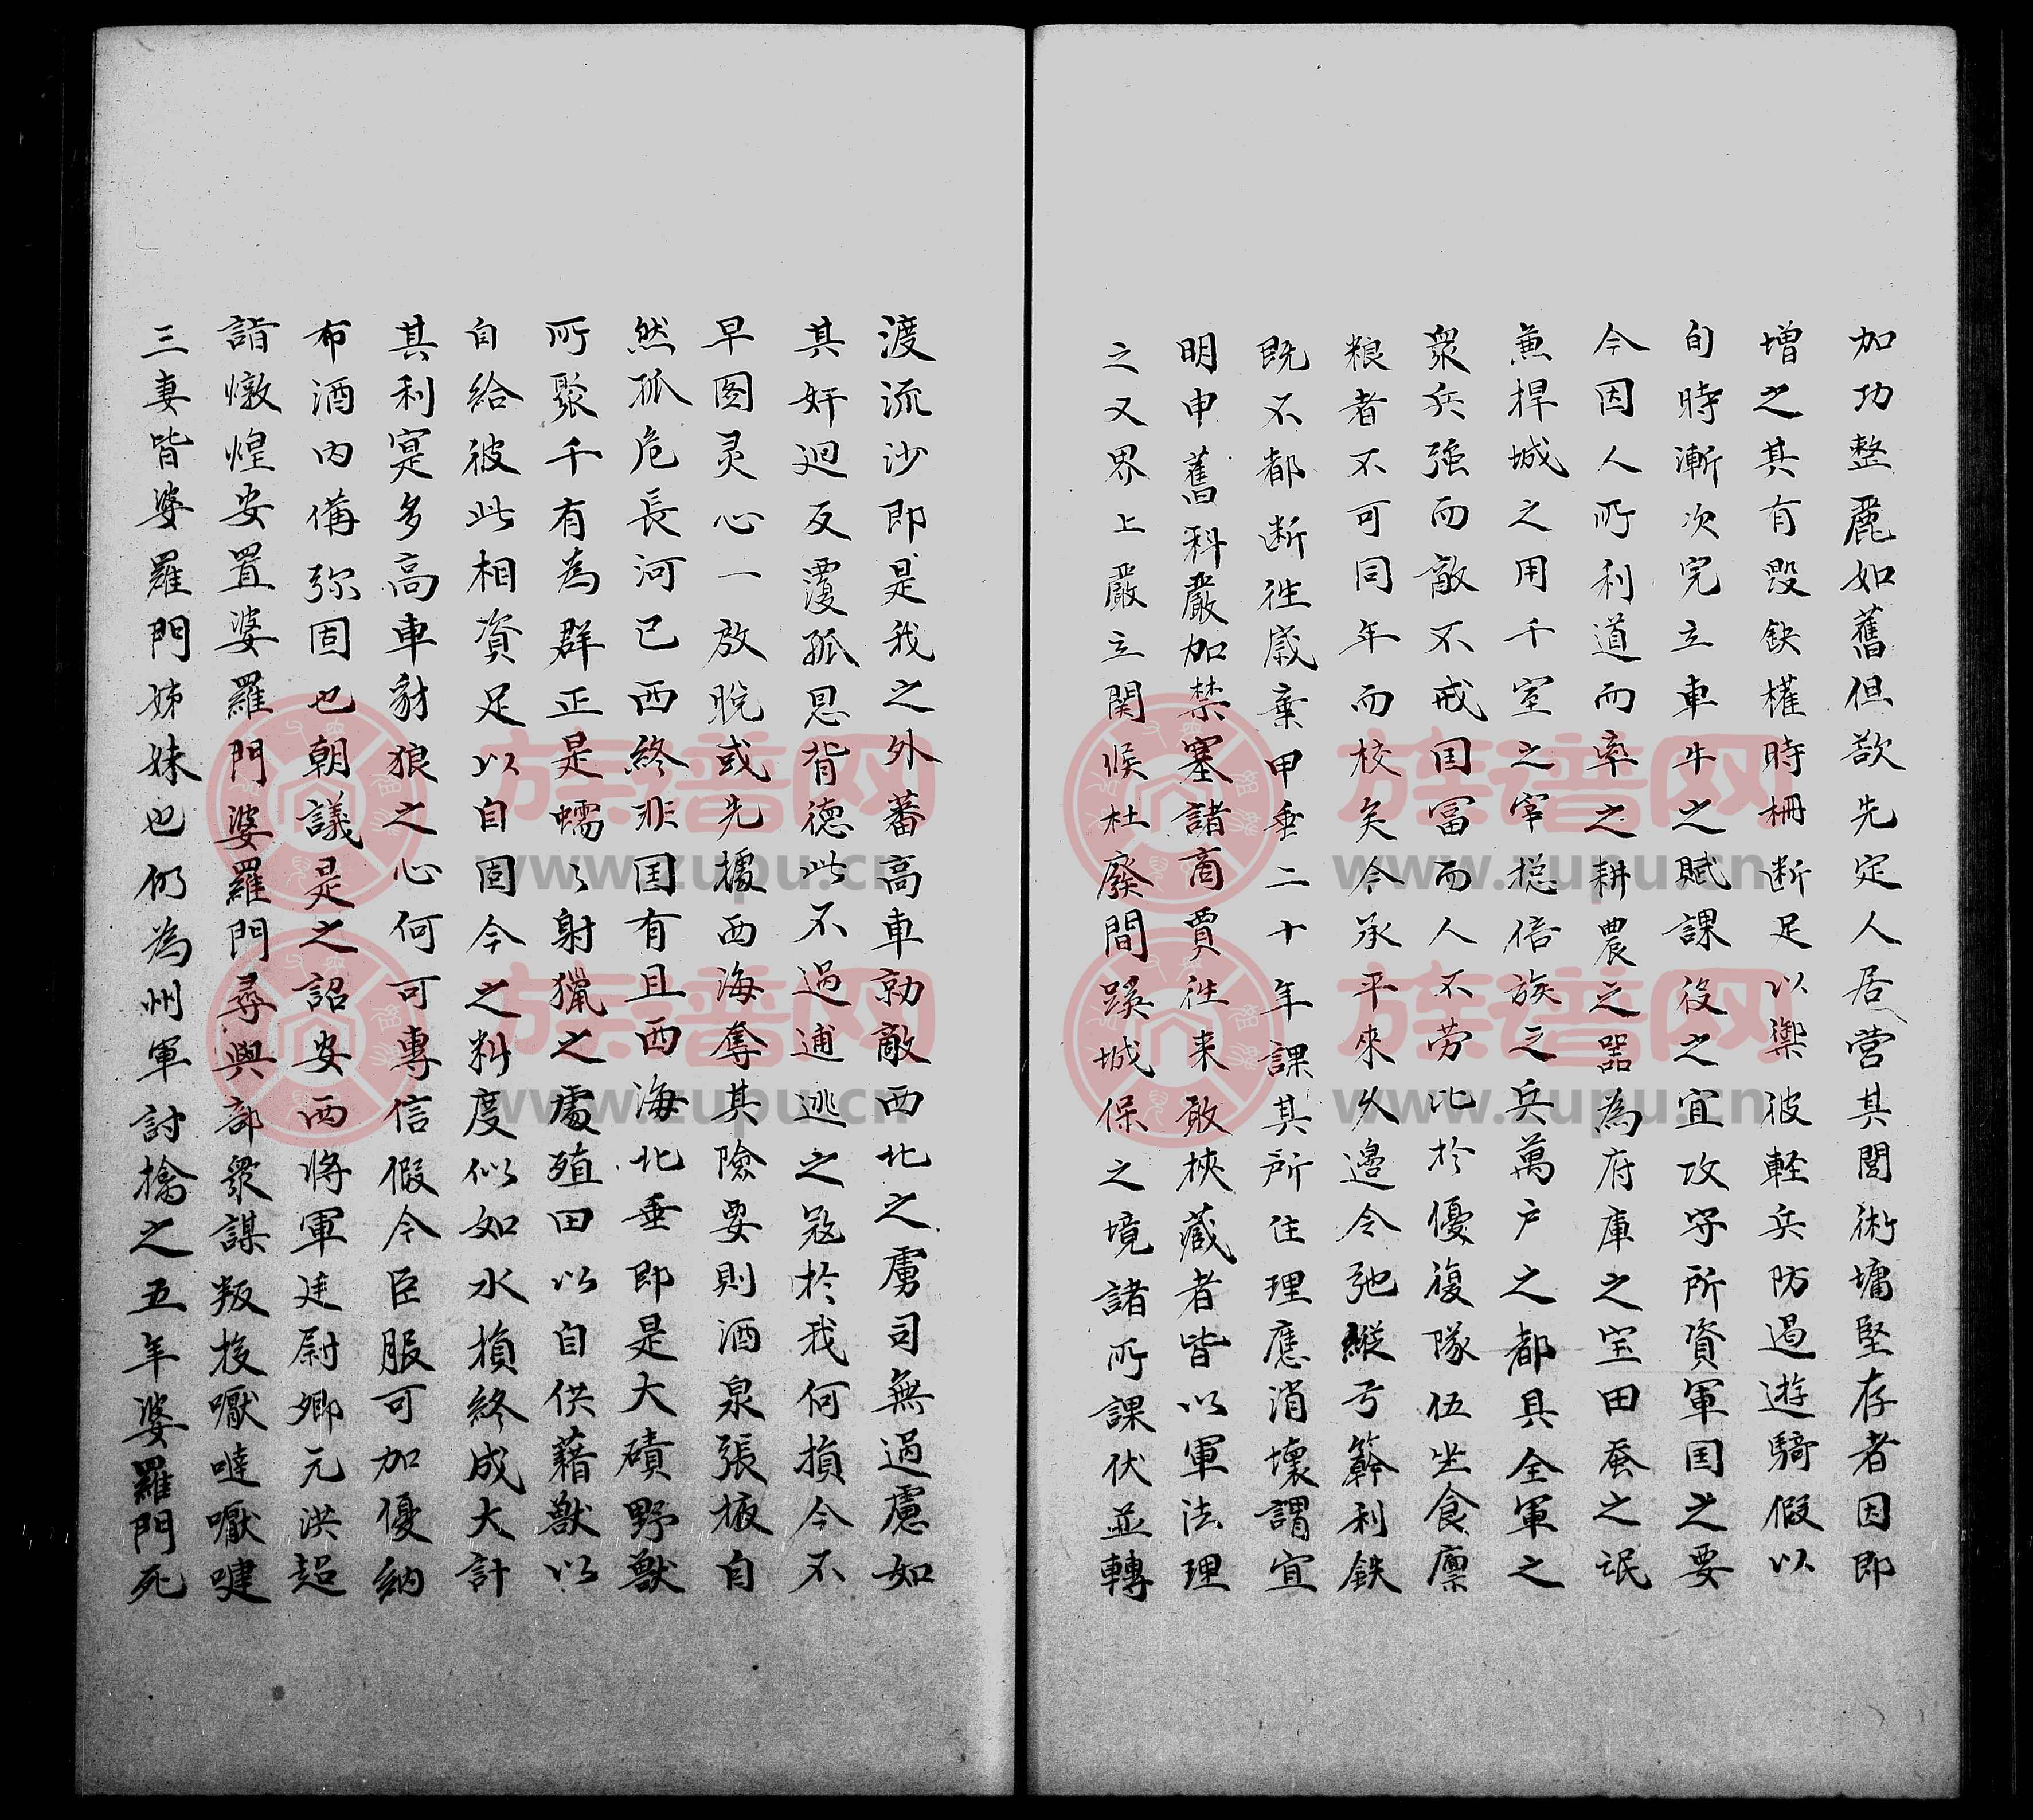 加功整麗如舊但欲先定人居営其閭術墉堅存者因即
増之其有毀缺権時柵断足以禦彼軽兵防過遊騎假以
旬時漸次完立車牛之賦課役之宜攻守所資軍国之要
今因人所利道而率之耕農之噐為府庫之宝田蚕之氓
兼捍城之用千室之宰摠倍族之兵萬户之都具全軍之
衆兵強而敵不戒国冨而人不労比於優複隊伍坐食廪
粮者不可同年而校矣今承平來久邉令弛縦弓簳利鉄
既不都断徃歳棄甲垂二十年課其所住理應消壊謂宜
明申舊科嚴加禁塞諸商賈徃来敢挾蔵者皆以軍法理
之又界上嚴立関候杜廢間蹊城保之境諸所課伏並轉
渡流沙即是我之外蕃高車勍敵西北之虜司無過慮如
其奸廻反覆孤恩背德此不過逋逃之冦於我何損今不
早图灵心一放脱或先據西海奪其險要則酒泉張掖自
然孤危長河已西終非国有且西海北垂即是大磧野獣
所聚千有為群正是蠕々射獵之處殖田以自供藉獣以
自給彼此相資足以自固今之料度似如水損終成大計
其利寔多高車豺狼之心何可專信假令臣服可加優納
布酒内備弥固也朝議是之詔安西将軍廷尉卿元洪超
詣燉煌安置婆羅門婆羅門尋與部衆謀叛投嚈噠嚈噠
三妻皆婆羅門姊妹也仍為州軍討擒之五年婆羅門死
族谱网
www.zupu.cn
族谱网
www.zupu.cn
族谱网
www.zupu.cn
族谱网
www.zupu.cn